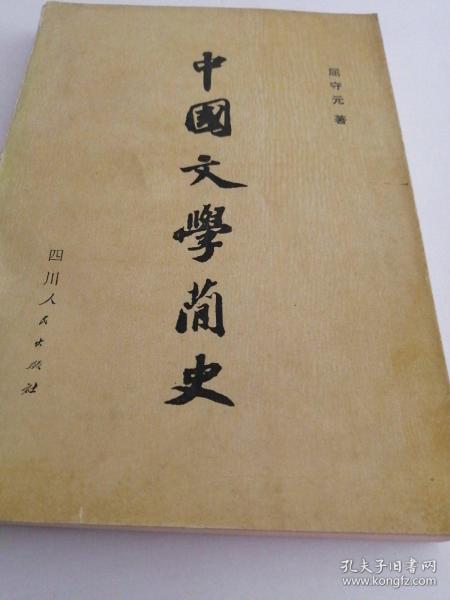 屈守元 著
中國文學簡史
四川人民出版社
孔夫子旧书网
www.kongfz.com